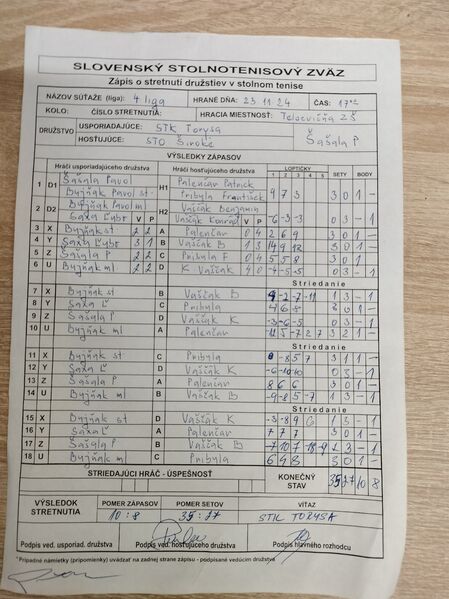 SLOVENSKÝ STOLNOTENISOVÝ ZVÄZ
Zápis o stretnutí družstiev v stolnom tenise
NÁZOV SÚŤAŽE (liga): 4 liga HRANÉ DŇA: 23 11 24 ČAS: 17
KOLO: ČÍSLO STRETNUTIA: HRACIA MIESTNOSŤ: Telocvičňa ZŠ
DRUŽSTVO USPORIADAJÚCE: STK Torysa Šašala P
HOSŤUJÚCE: STO Široké
VÝSLEDKY ZÁPASOV
Hráči usporiadajúceho družstva Hráči hosťujúceho družstva LOPTIČKY 1 2 3 4 5 SETY BODY
1 D1 Šašala Pavol H1 Palenčár Patrick
Byjňak Pavol st Pribyla František 4 7 3 3 0 1 -
2 D2 Byjňak Pavol ml H2 Vaščák Benjamin
Saxa Ľubr V P Vaščák Konrád V P -6 -3 -3 0 3 - 1
3 X Byjňak st 2 2 A Palenčár 0 4 2 6 9 3 0 1 -
4 Y Saxa Ľubr 3 1 B Vaščák B 1 3 14 9 12 3 0 1 -
5 Z Šašala P 2 2 C Pribyla F 0 4 5 5 8 3 0 1 -
6 U Byjňak ml 2 2 D K Vaščák 4 0 -4 -5 -5 0 3 - 1
Striedanie
7 X Byjňak st B Vaščák B 9 -2 -7 -11 1 3 - 1
8 Y Saxa Ľ C Pribyla 4 6 8 3 0 1 -
9 Z Šašala P D Vaščák K -3 -6 -5 0 3 - 1
10 U Byjňak ml A Palenčár 5 -7 2 7 3 2 1 -
Striedanie
11 X Byjňak st C Pribyla -8 5 7 3 1 1 -
12 Y Saxa Ľ D Vaščák K -6 -10 -10 0 3 - 1
13 Z Šašala P A Palenčár 8 6 6 3 0 1 -
14 U Byjňak ml B Vaščák B -9 -8 5 -7 1 3 - 1
Striedanie
15 X Byjňak st D Vaščák K -3 -8 9 1 3 - 1
16 Y Saxa Ľ A Palenčár 7 7 7 3 0 1 -
17 Z Šašala P B Vaščák B -7 10 7 -18 -9 2 3 - 1
18 U Byjňak ml C Pribyla 6 4 8 3 0 1 -
STRIEDAJÚCI HRÁČ - ÚSPEŠNOSŤ KONEČNÝ STAV 35 27 10 8
VÝSLEDOK STRETNUTIA POMER ZÁPASOV POMER SETOV VÍŤAZ
10 : 8 35 : 27 STK TORYSA
Podpis ved. usporiad. družstva Podpis ved. hosťujúceho družstva Podpis hlavného rozhodcu
* Prípadné námietky (pripomienky) uvádzať na zadnej strane zápisu - podpísané vedúcim družstva